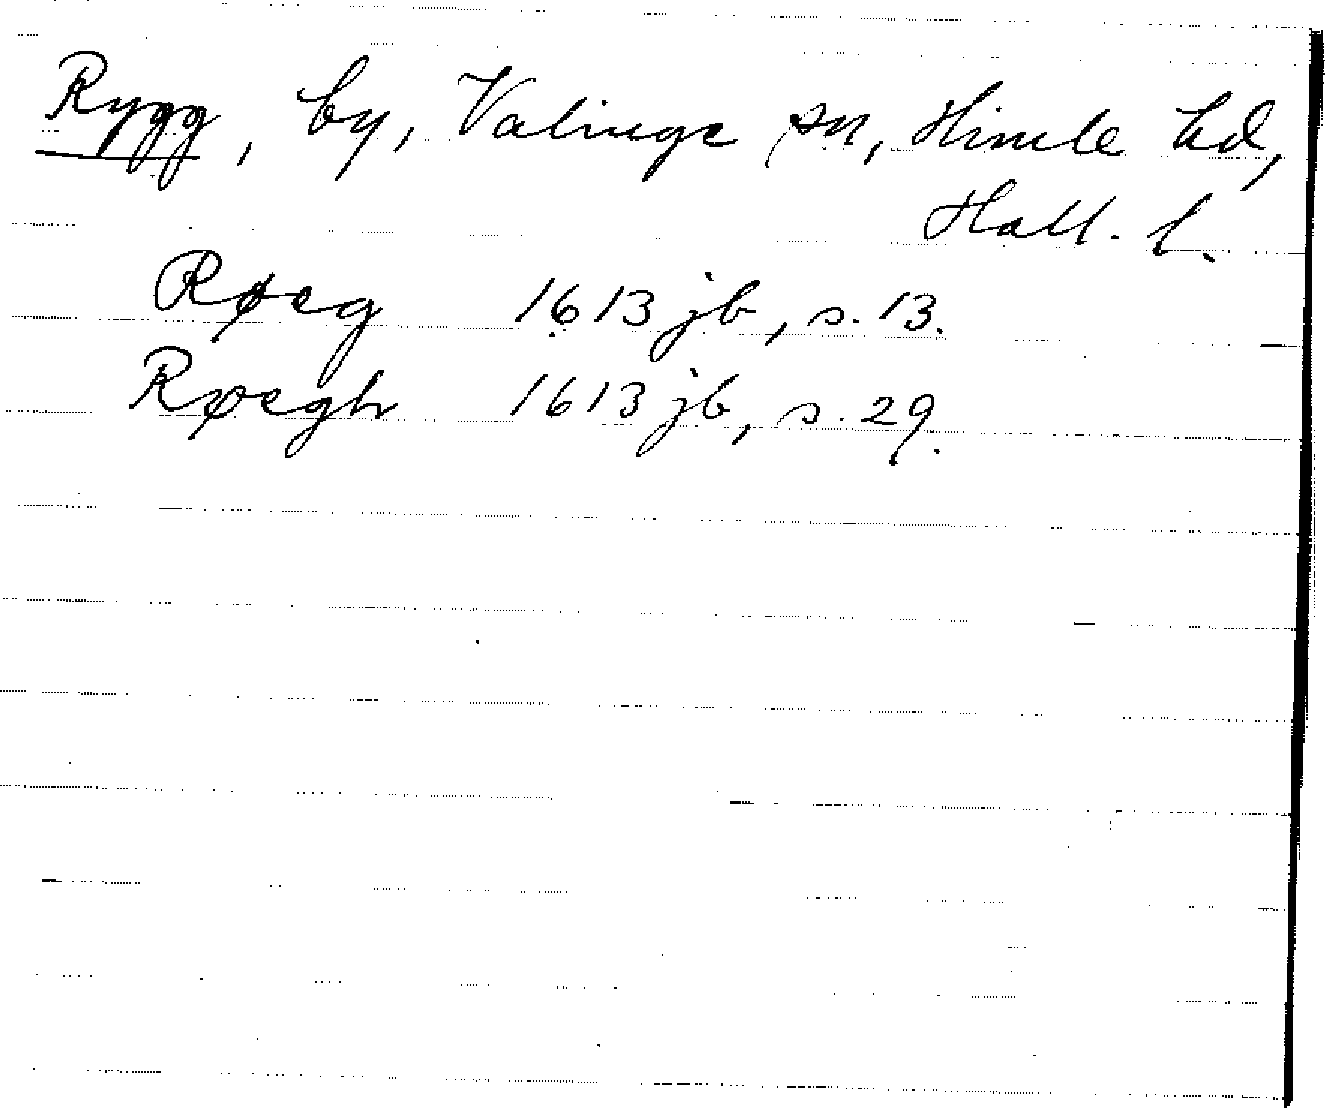 Rygg, by, Valinge sn, Himle hd,
Hall. l.
Røeg 1613 jb, s. 13.
Røegh 1613 jb, s. 29.